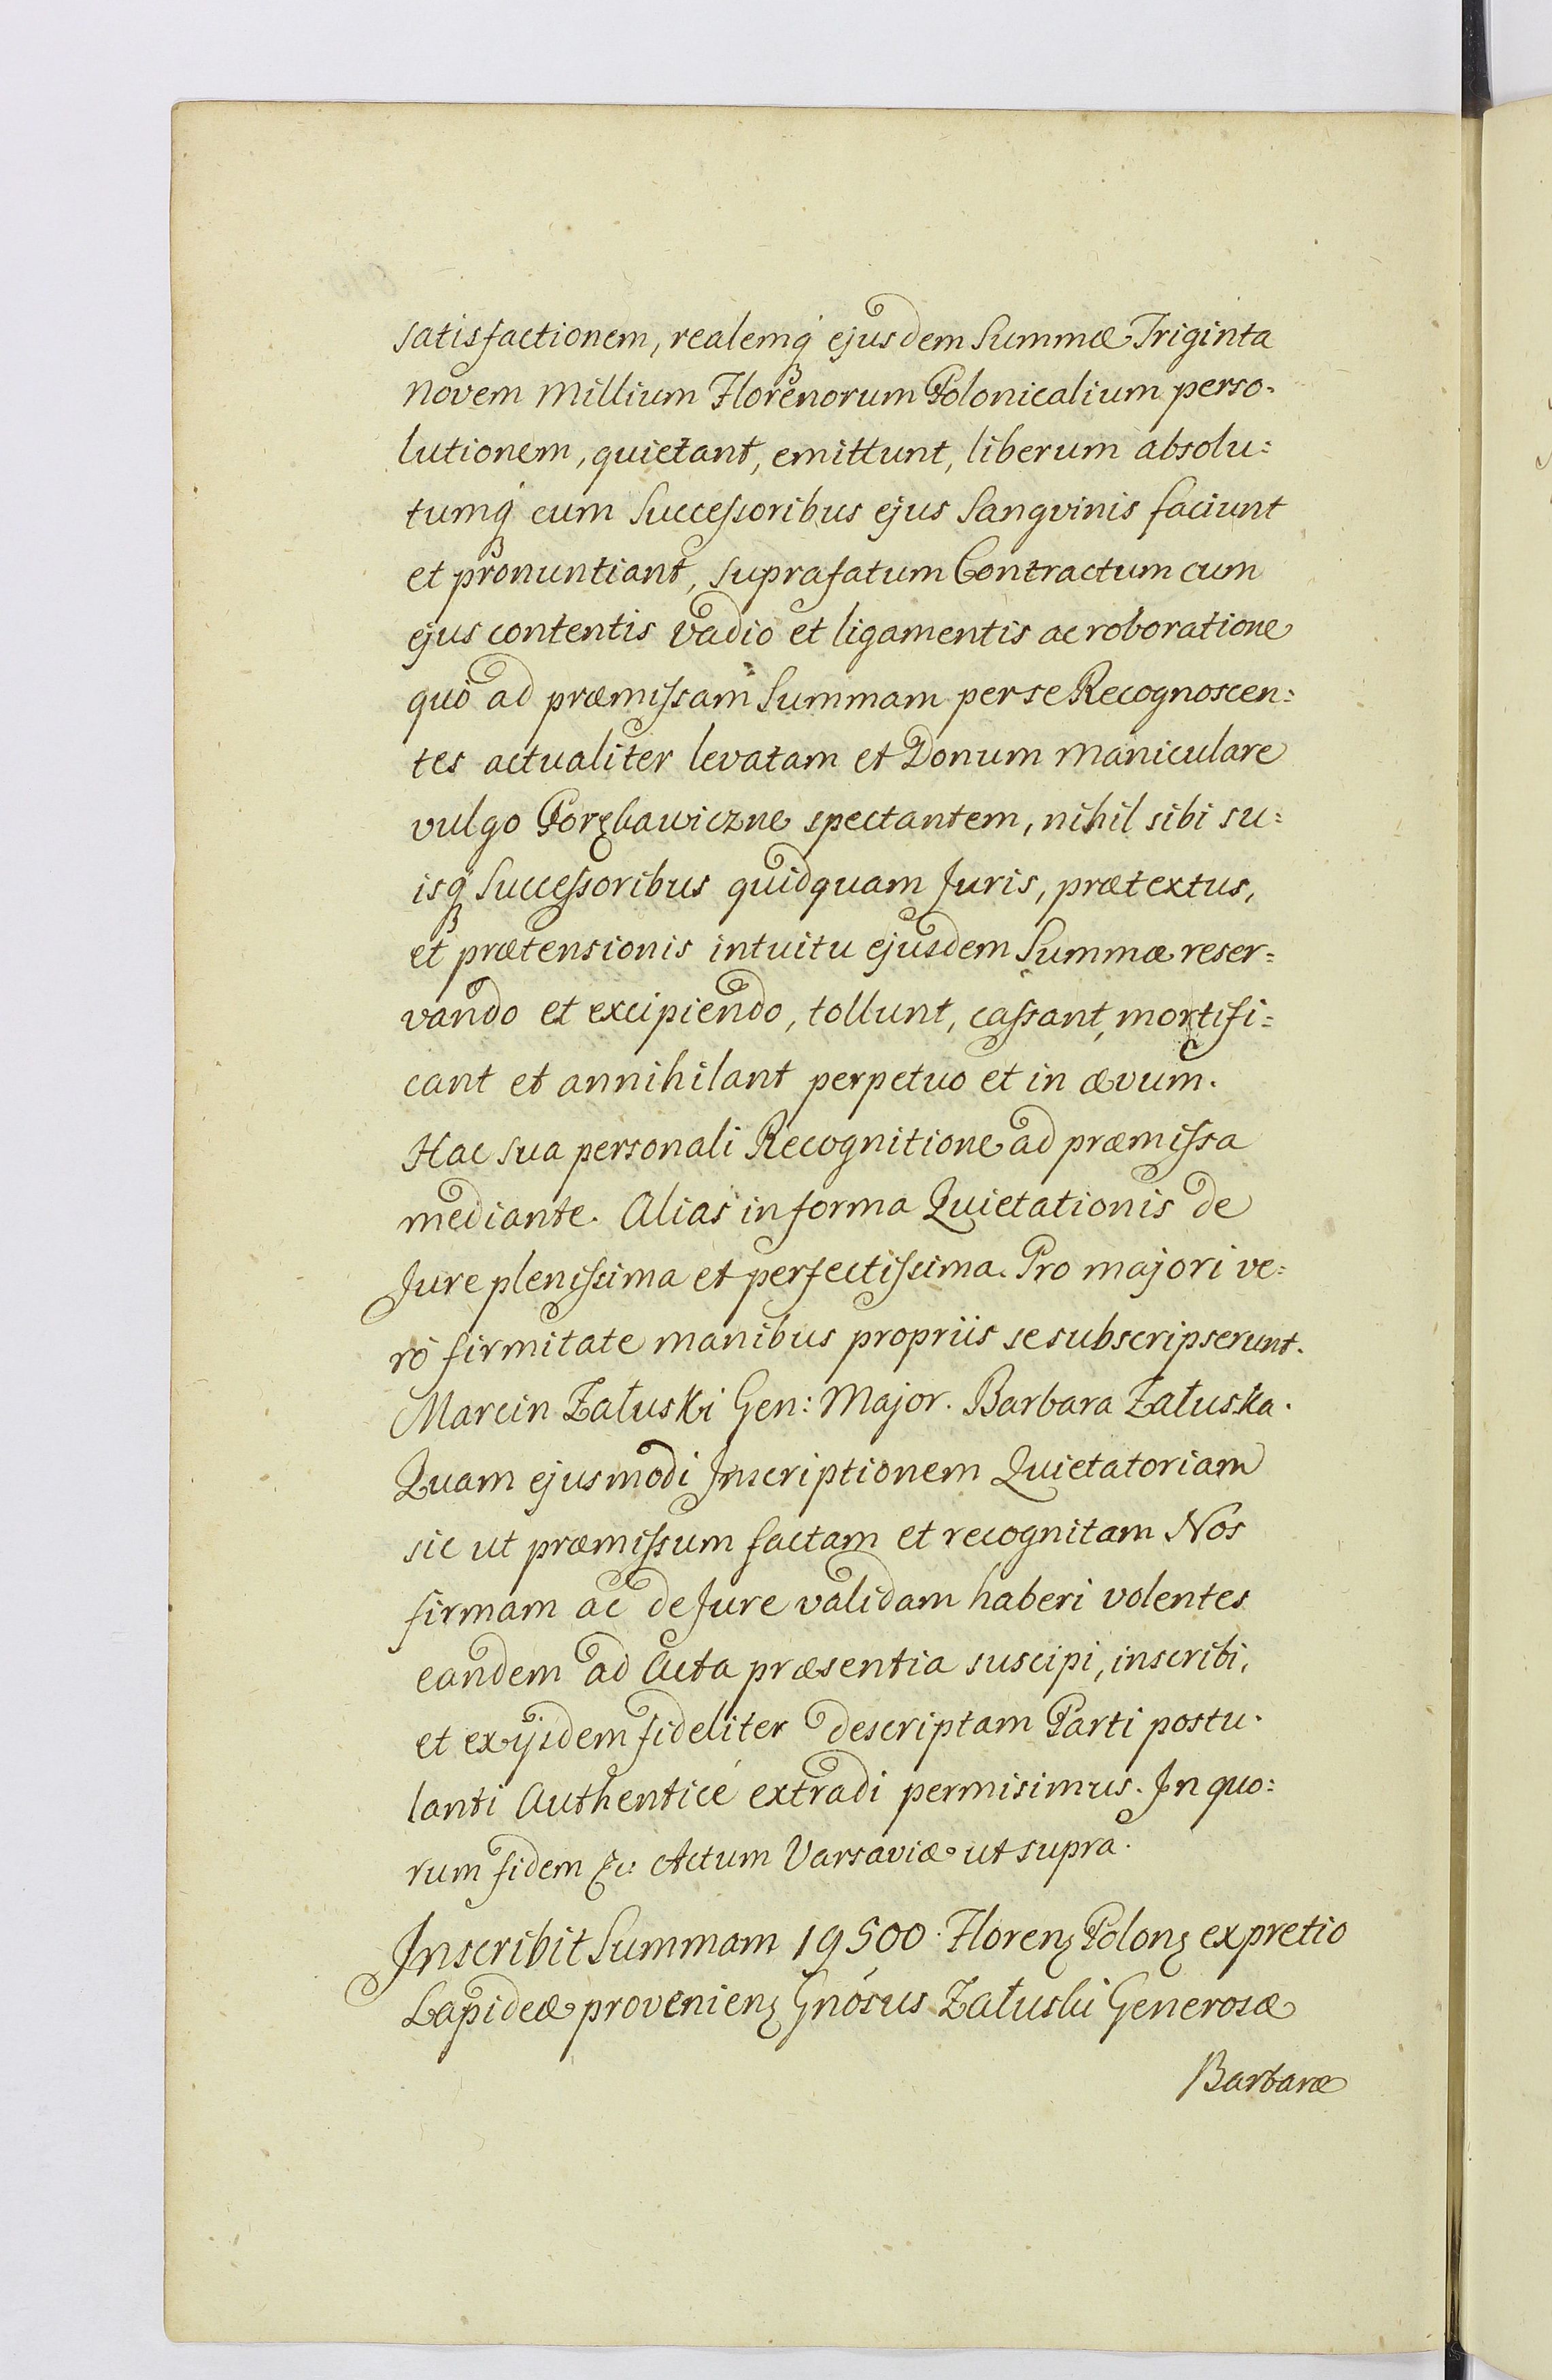 satisfactionem, realemq́ ejusdem Summæ Triginta
Novem Millium Florenorum Polonicalium perso-
lutionem, quietant, emittunt, liberum absolu:
tumq́ cum Successoribus ejus Sangvinis faciunt
et pronuntiant, suprafatum Contractum cum
ejus contentis vadio et ligamentis ac roboratione
quò ad præmissam Summam per se Recognoscen:
tes actualiter levatam et Donum Maniculare
vulgo Porękawiczne spectantem, nihil sibi su:
isq́ Successoribus quidquam Juris, prætextus,
et prætensionis intuitu ejusdem Summæ reser:
vando et excipiendo, tollunt, cassant, mortifi:
cant et annihilant perpetuo et in ævum.
Hac sua personali Recognitione ad præmissa
mediante. Alias in forma Quietationis de
Jure plenissima et perfectissima. Pro majori ve:
rò firmitate manibus propriis se subscripserunt.
Marcin Załuski Gen: Major. Barbara Załuska.
Quam ejusmodi Inscriptionem Quietatoriam
sic ut præmissum factam et recognitam Nos
firmam ac de Jure validam haberi volentes
eandem ad Acta præsentia suscipi, inscribi,
et ex ijsdem fideliter descriptam Parti postu-
lanti Authenticé extradi permisimus. In quo:
rum fidem &c: Actum Varsaviæ ut supra.
Inscribit Summam 19500. Florenꝫ Polonꝫ ex pretio
Lapideæ provenienꝫ Gnósus Załuski Generosæ
Barbaræ